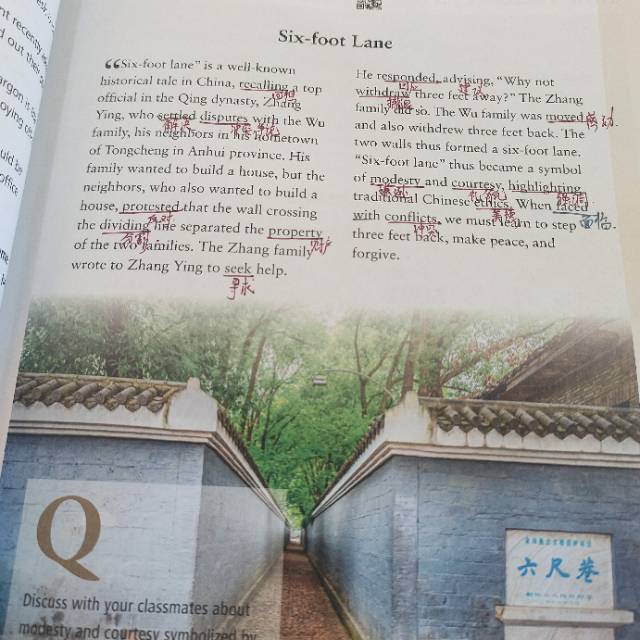 Six-foot Lane
“Six-foot lane” is a well-known
historical tale in China, recalling a top
official in the Qing dynasty, Zhang
回想
Ying, who settled disputes with the Wu
解决
family, his neighbors in his hometown
of Tongcheng in Anhui province. His
family wanted to build a house, but the
neighbors, who also wanted to build a
house, protested that the wall crossing
反对
the dividing line separated the property
分割
财产
of the two families. The Zhang family
wrote to Zhang Ying to seek help.
寻求
He responded, advising, “Why not
回应
建议
withdraw three feet away?” The Zhang
family did so. The Wu family was moved
感动
and also withdrew three feet back. The
two walls thus formed a six-foot lane.
“Six-foot lane” thus became a symbol
of modesty and courtesy, highlighting
traditional Chinese ethics. When faced
with conflicts, we must learn to step
面临
冲突
three feet back, make peace, and
forgive.
六尺巷
Q
Discuss with your classmates about
modesty and courtesy symbolized by